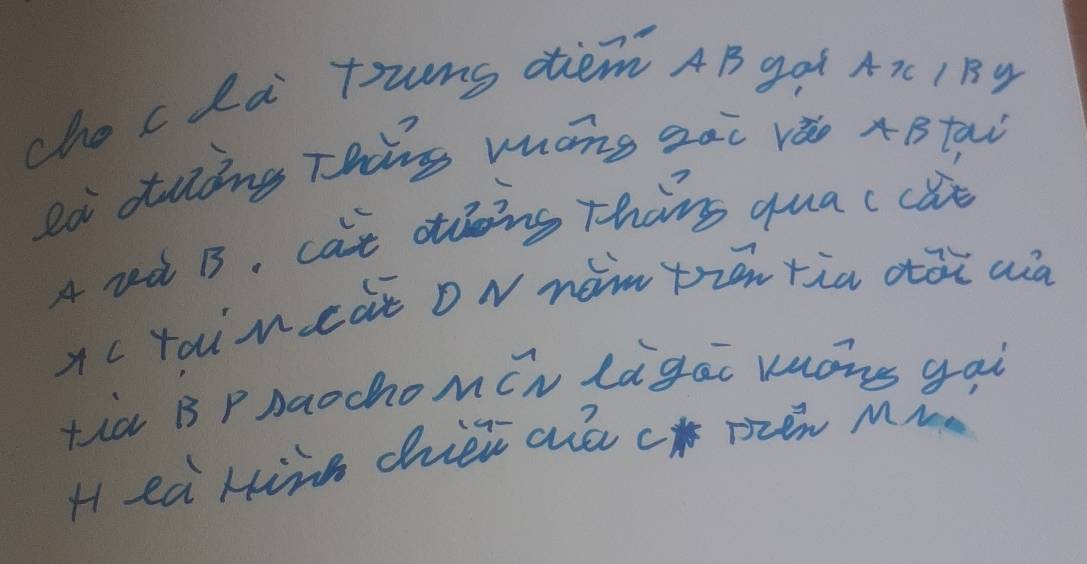 cho c là Trung điểm AB gọi Ax, By
là đường Thẳng vuông góc vào AB tại
A và B. cắt đường Thẳng qua c cắt
xc tại M cắt DN nằm trên tia đối của
tia BP saocho MCN là góc vuông gọi
H là Hình chiếu của c trên MN.